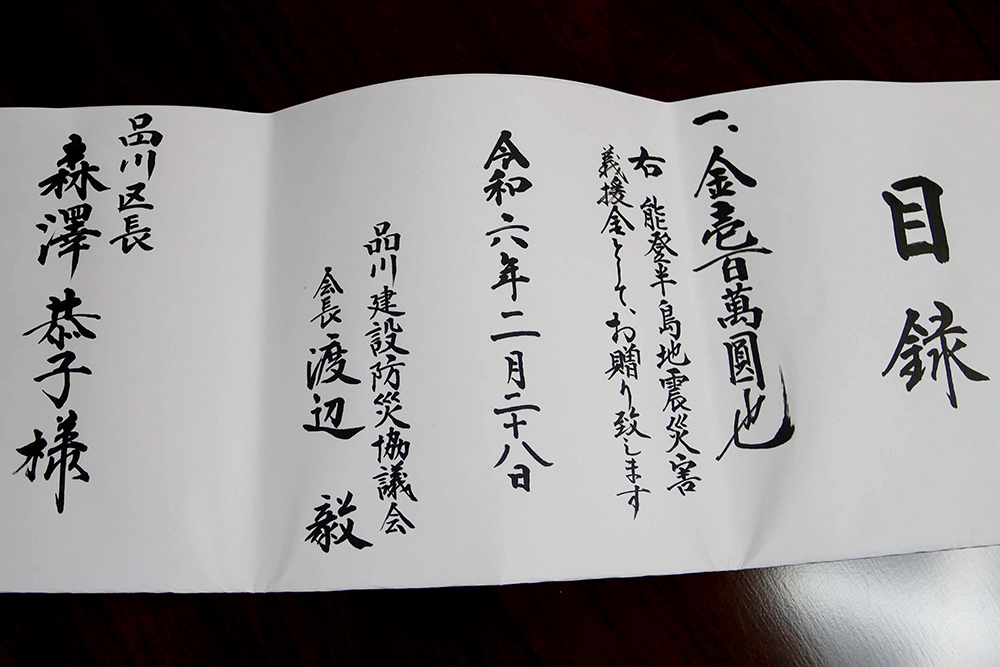 目録
一、金壱百萬圓也
右 能登半島地震災害
義援金として、お贈り致します
令和六年二月二十八日
品川建設防災協議会
会長 渡辺 毅
品川区長
森澤 恭子様